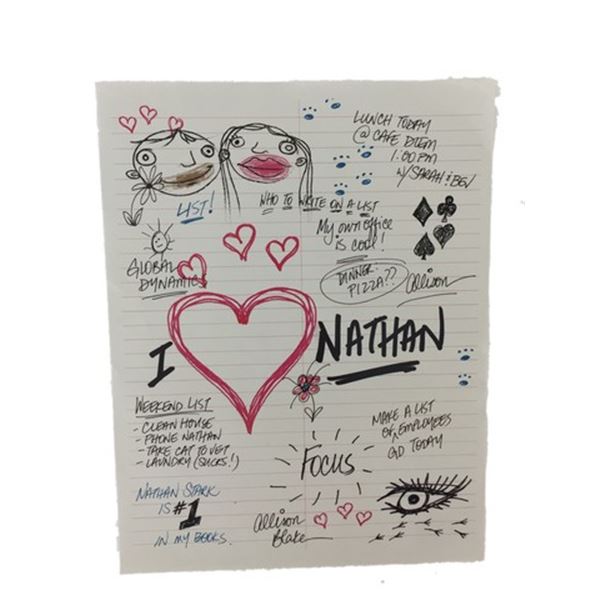 LUNCH TODAY
@ CAFE DIEM
1:00 PM
W/ SARAH & BEV
LIST!
WHO TO WRITE ON A LIST
My own office
is cool!
GLOBAL
DYNAMICS
DINNER:
PIZZA??
Allison
I
NATHAN
WEEKEND LIST
- CLEAN HOUSE
- PHONE NATHAN
- TAKE CAT TO VET
- LAUNDRY (SUCKS!)
MAKE A LIST
OF EMPLOYEES
GD TODAY
FOCUS
NATHAN STARK
IS #1
IN MY BOOKS.
Allison
Blake